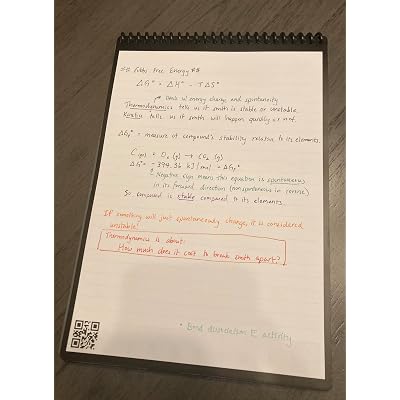 Gibbs Free Energy
ΔG° = ΔH° - TΔS°
Deals w/ energy change and spontaneity
Thermodynamics tells us if smth is stable or unstable.
Kinetics tells us if smth will happen quickly or not.
ΔGf° = measure of compound's stability relative to its elements.
C (gr) + O2 (g) → CO2 (g)
ΔG° = -394.36 kJ/mol = ΔGf°
Negative sign means this equation is spontaneous
in its forward direction (nonspontaneous in reverse)
So compound is stable compared to its elements.
If something will just spontaneously change, it is considered
unstable!
Thermodynamics is about:
How much does it cost to break smth apart?
* Bond dissociation E activity